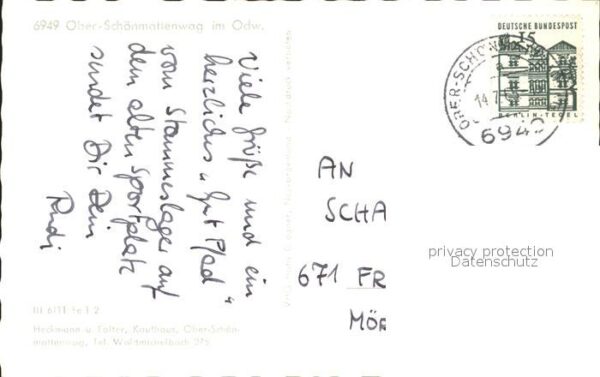 6949 Ober-Schönmattenwag im Odw.
Viele Grüße und ein
herzliches "Gut Pfad"
vom Stammeslager auf
dem alten Sportplatz
sendet Dir Dein
Rudi
III 6/11 Fe 1 2
Heckmann u. Falter, Kaufhaus, Ober-Schön-
mattenwag, Tel. Waldmichelbach 275
Nachdruck verboten
DEUTSCHE BUNDESPOST
15
BERLIN-TEGEL
OBER-SCHÖN
14.7
6949
AN
SCHA
671 FR
MÖR
privacy protection
Datenschutz